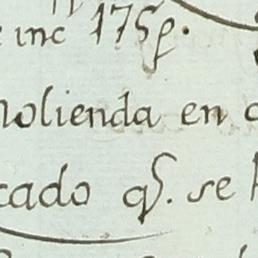 inc 175p.
olienda en
cado q. se